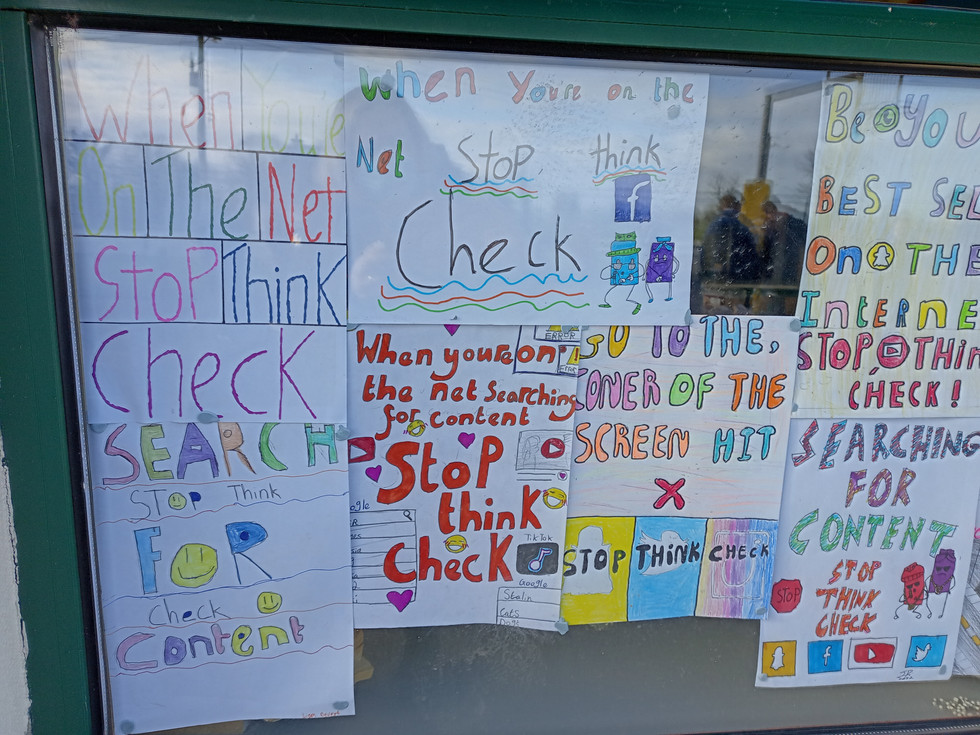 When You're
On The Net
STOP Think
Check
When You're on the
Net Stop think
f
Check
Be You
BEST
On THE
Interne
STOP THIN
CHECK!
SEARCH
STOP Think
FOR
Check
Content
ERROR
When you're on
the net searching
for content
Stop
think
Check
TikTok
Google
Stalin
Cats
Dogs
GO TO THE,
CONER OF THE
SCREEN HIT
X
STOP THINK CHECK
SEARCHING
FOR
CONTENT
STOP
THINK
CHECK
STOP
f